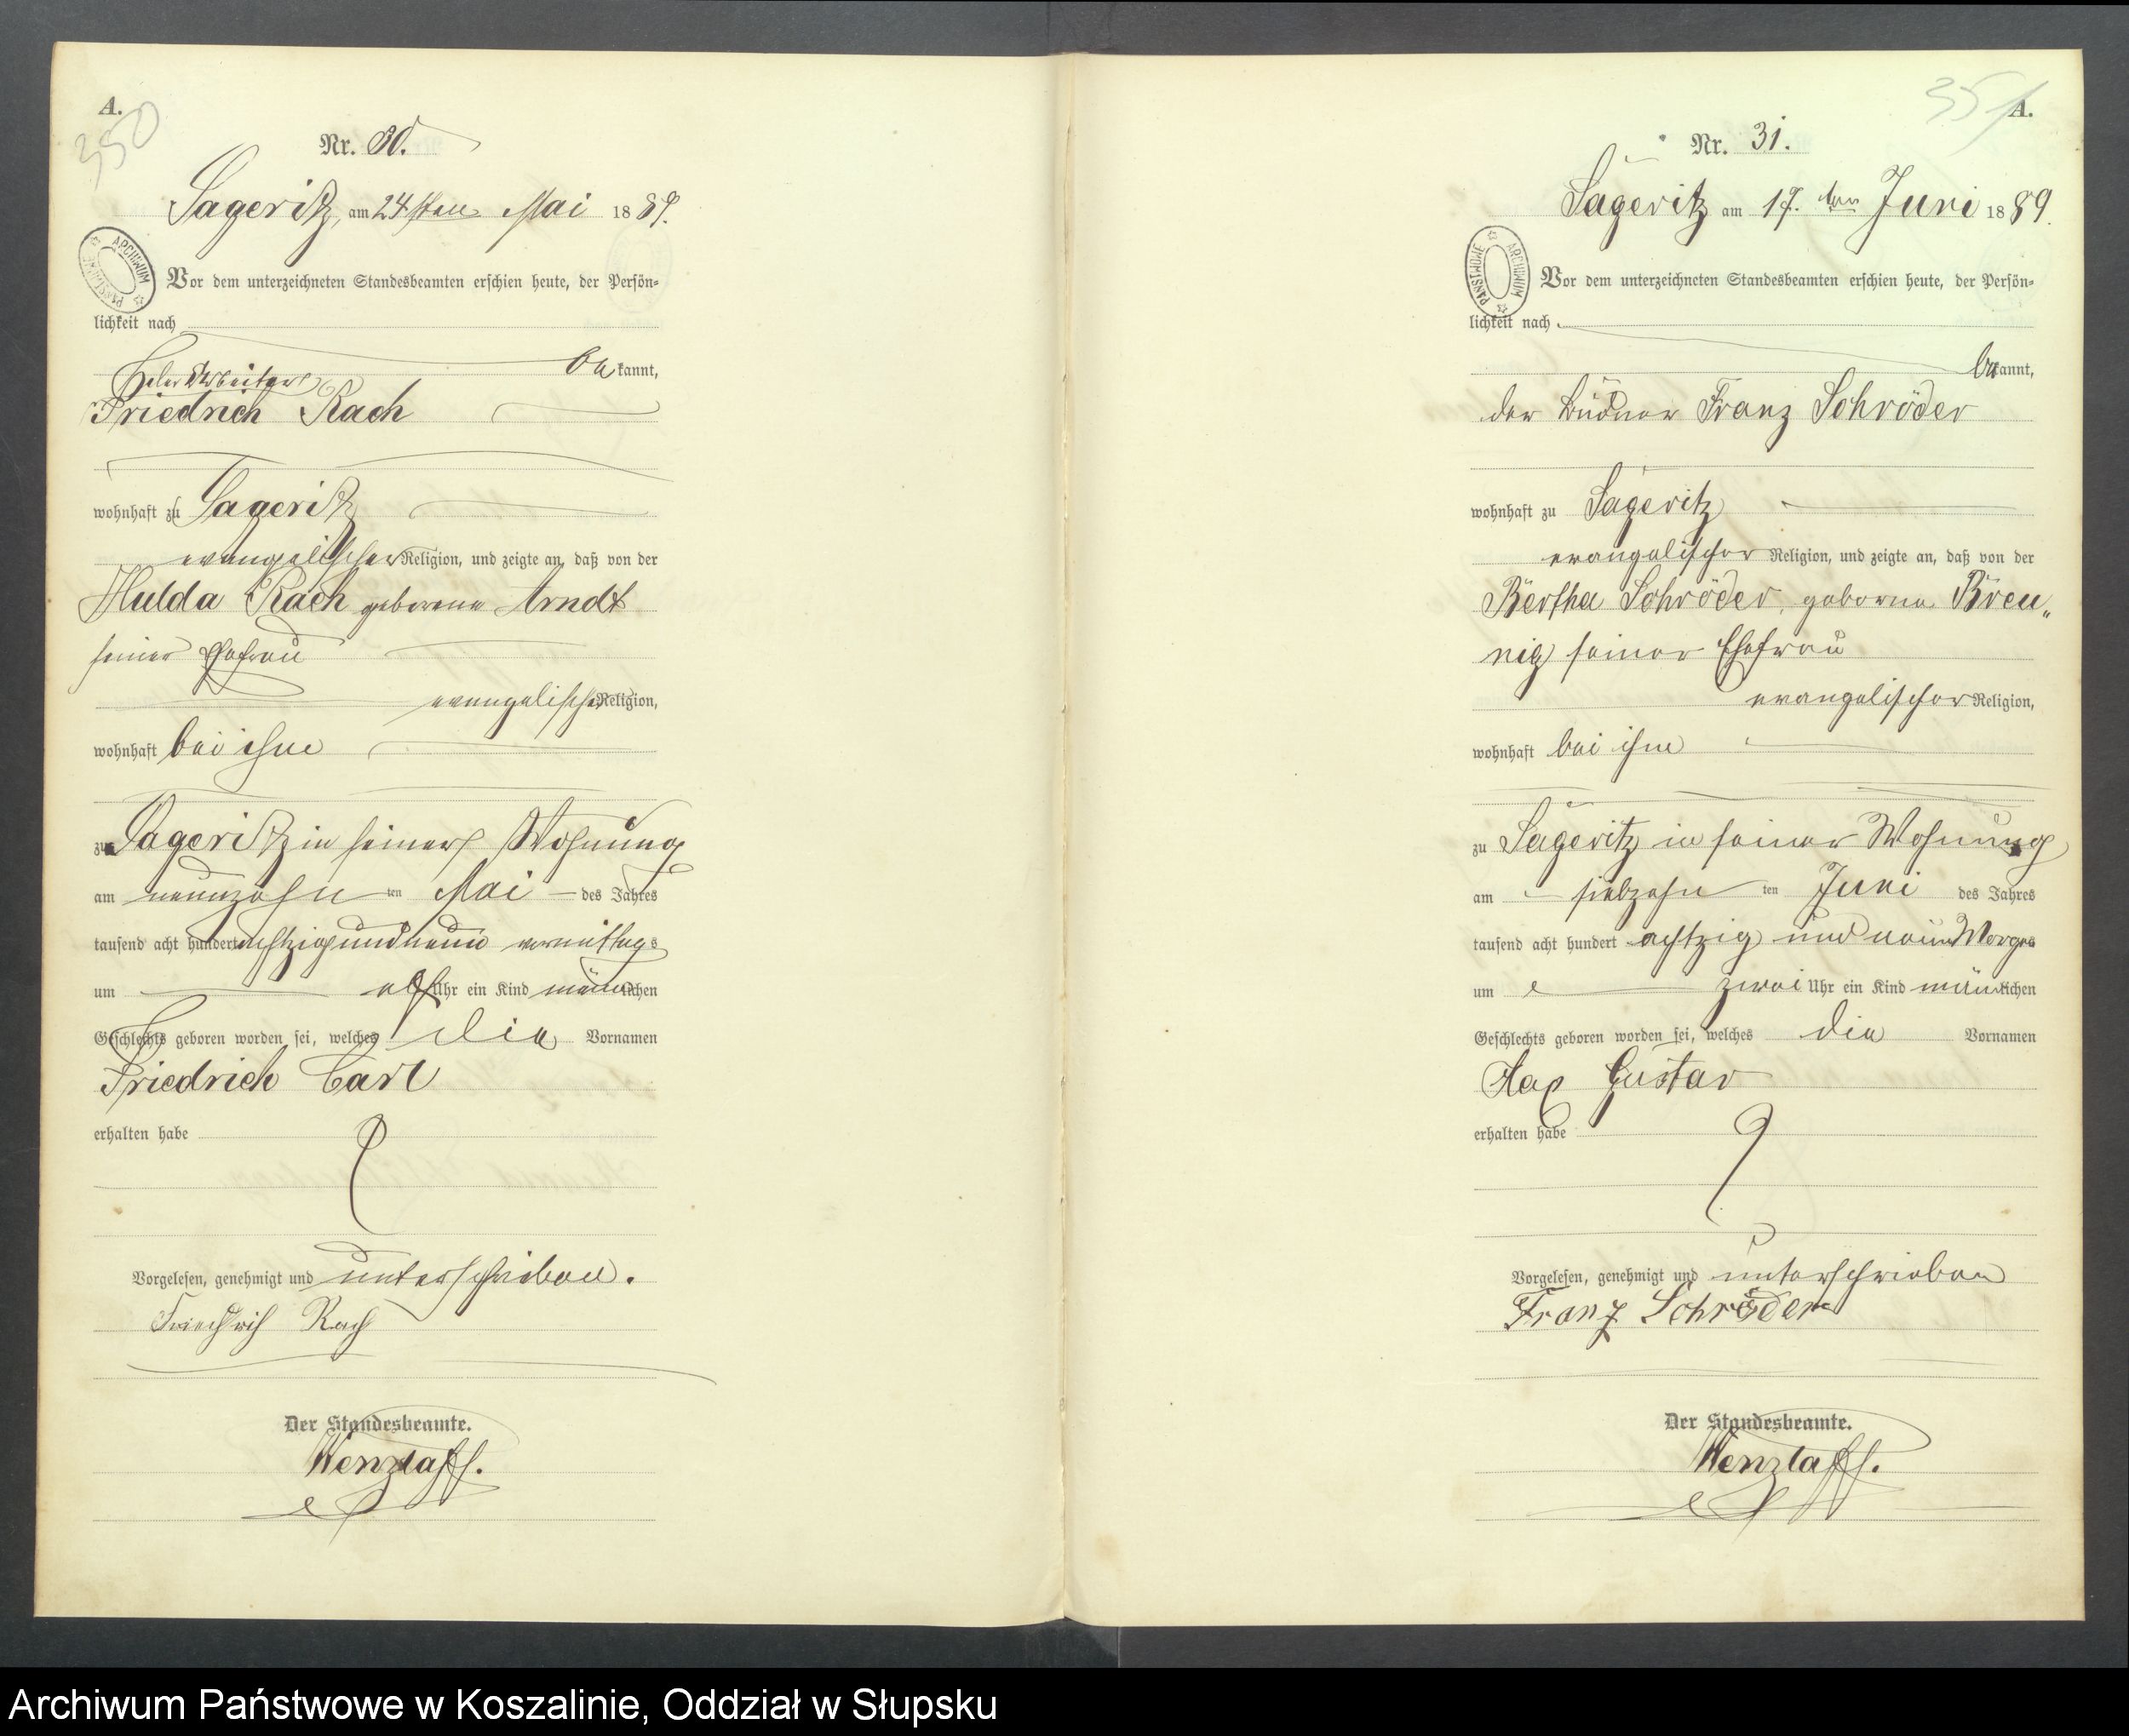 A.
350
Nr. 30.
Sageritz, am 24sten Mai 1889.
ARCHIWUM PAŃSTWOWE
Vor dem unterzeichneten Standesbeamten erschien heute, der Persön-
lichkeit nach
bekannt,
der Arbeiter
Friedrich Rach
wohnhaft zu Sageritz
evangelischer Religion, und zeigte an, daß von der
Hulda Rach geborene Arndt
seiner Ehefrau
evangelischer Religion,
wohnhaft bei ihm
zu Sageritz in seiner Wohnung
am neunzehnten Mai des Jahres
tausend acht hundert achtzigundneun vormittags
um elf Uhr ein Kind männlichen
Geschlechts geboren worden sei, welches die Vornamen
Friedrich Carl
erhalten habe
Vorgelesen, genehmigt und unterschrieben.
Friedrich Rach
Der Standesbeamte.
Wenzlaff.
351
A.
Nr. 31.
Sageritz am 17. ten Juni 1889.
ARCHIWUM PAŃSTWOWE
Vor dem unterzeichneten Standesbeamten erschien heute, der Persön-
lichkeit nach
bekannt,
der Büdner Franz Schröder
wohnhaft zu Sageritz
evangelischer Religion, und zeigte an, daß von der
Bertha Schröder, geborne Breu„
nig seiner Ehefrau
evangelischer Religion,
wohnhaft bei ihm
zu Sageritz in seiner Wohnung
am siebzehn ten Juni des Jahres
tausend acht hundert achtzig und neun Morgens
um zwei Uhr ein Kind männlichen
Geschlechts geboren worden sei, welches die Vornamen
Max Gustav
erhalten habe
Vorgelesen, genehmigt und unterschrieben
Franz Schröder
Der Standesbeamte.
Wenzlaff.
Archiwum Państwowe w Koszalinie, Oddział w Słupsku